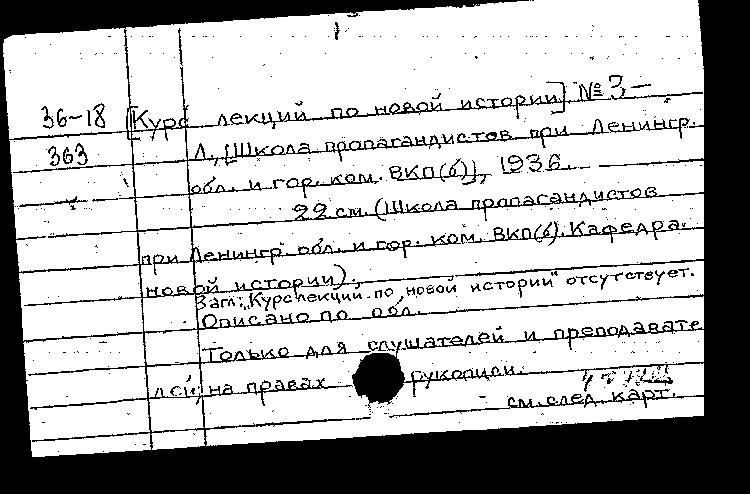 36-18 [Курс лекций по новой истории]. №3,-
363 Л., [Школа пропагандистов при Ленингр.
обл. и гор. ком. ВКП(б)], 1936.
22 см. (Школа пропагандистов
при Ленингр. обл. и гор. ком. ВКП(б). Кафедра
новой истории).
Загл: "Курс лекций по новой истории" отсутствует.
Описано по обл.
Только для слушателей и преподавате
лей, на правах рукописи.
см. след. карт.